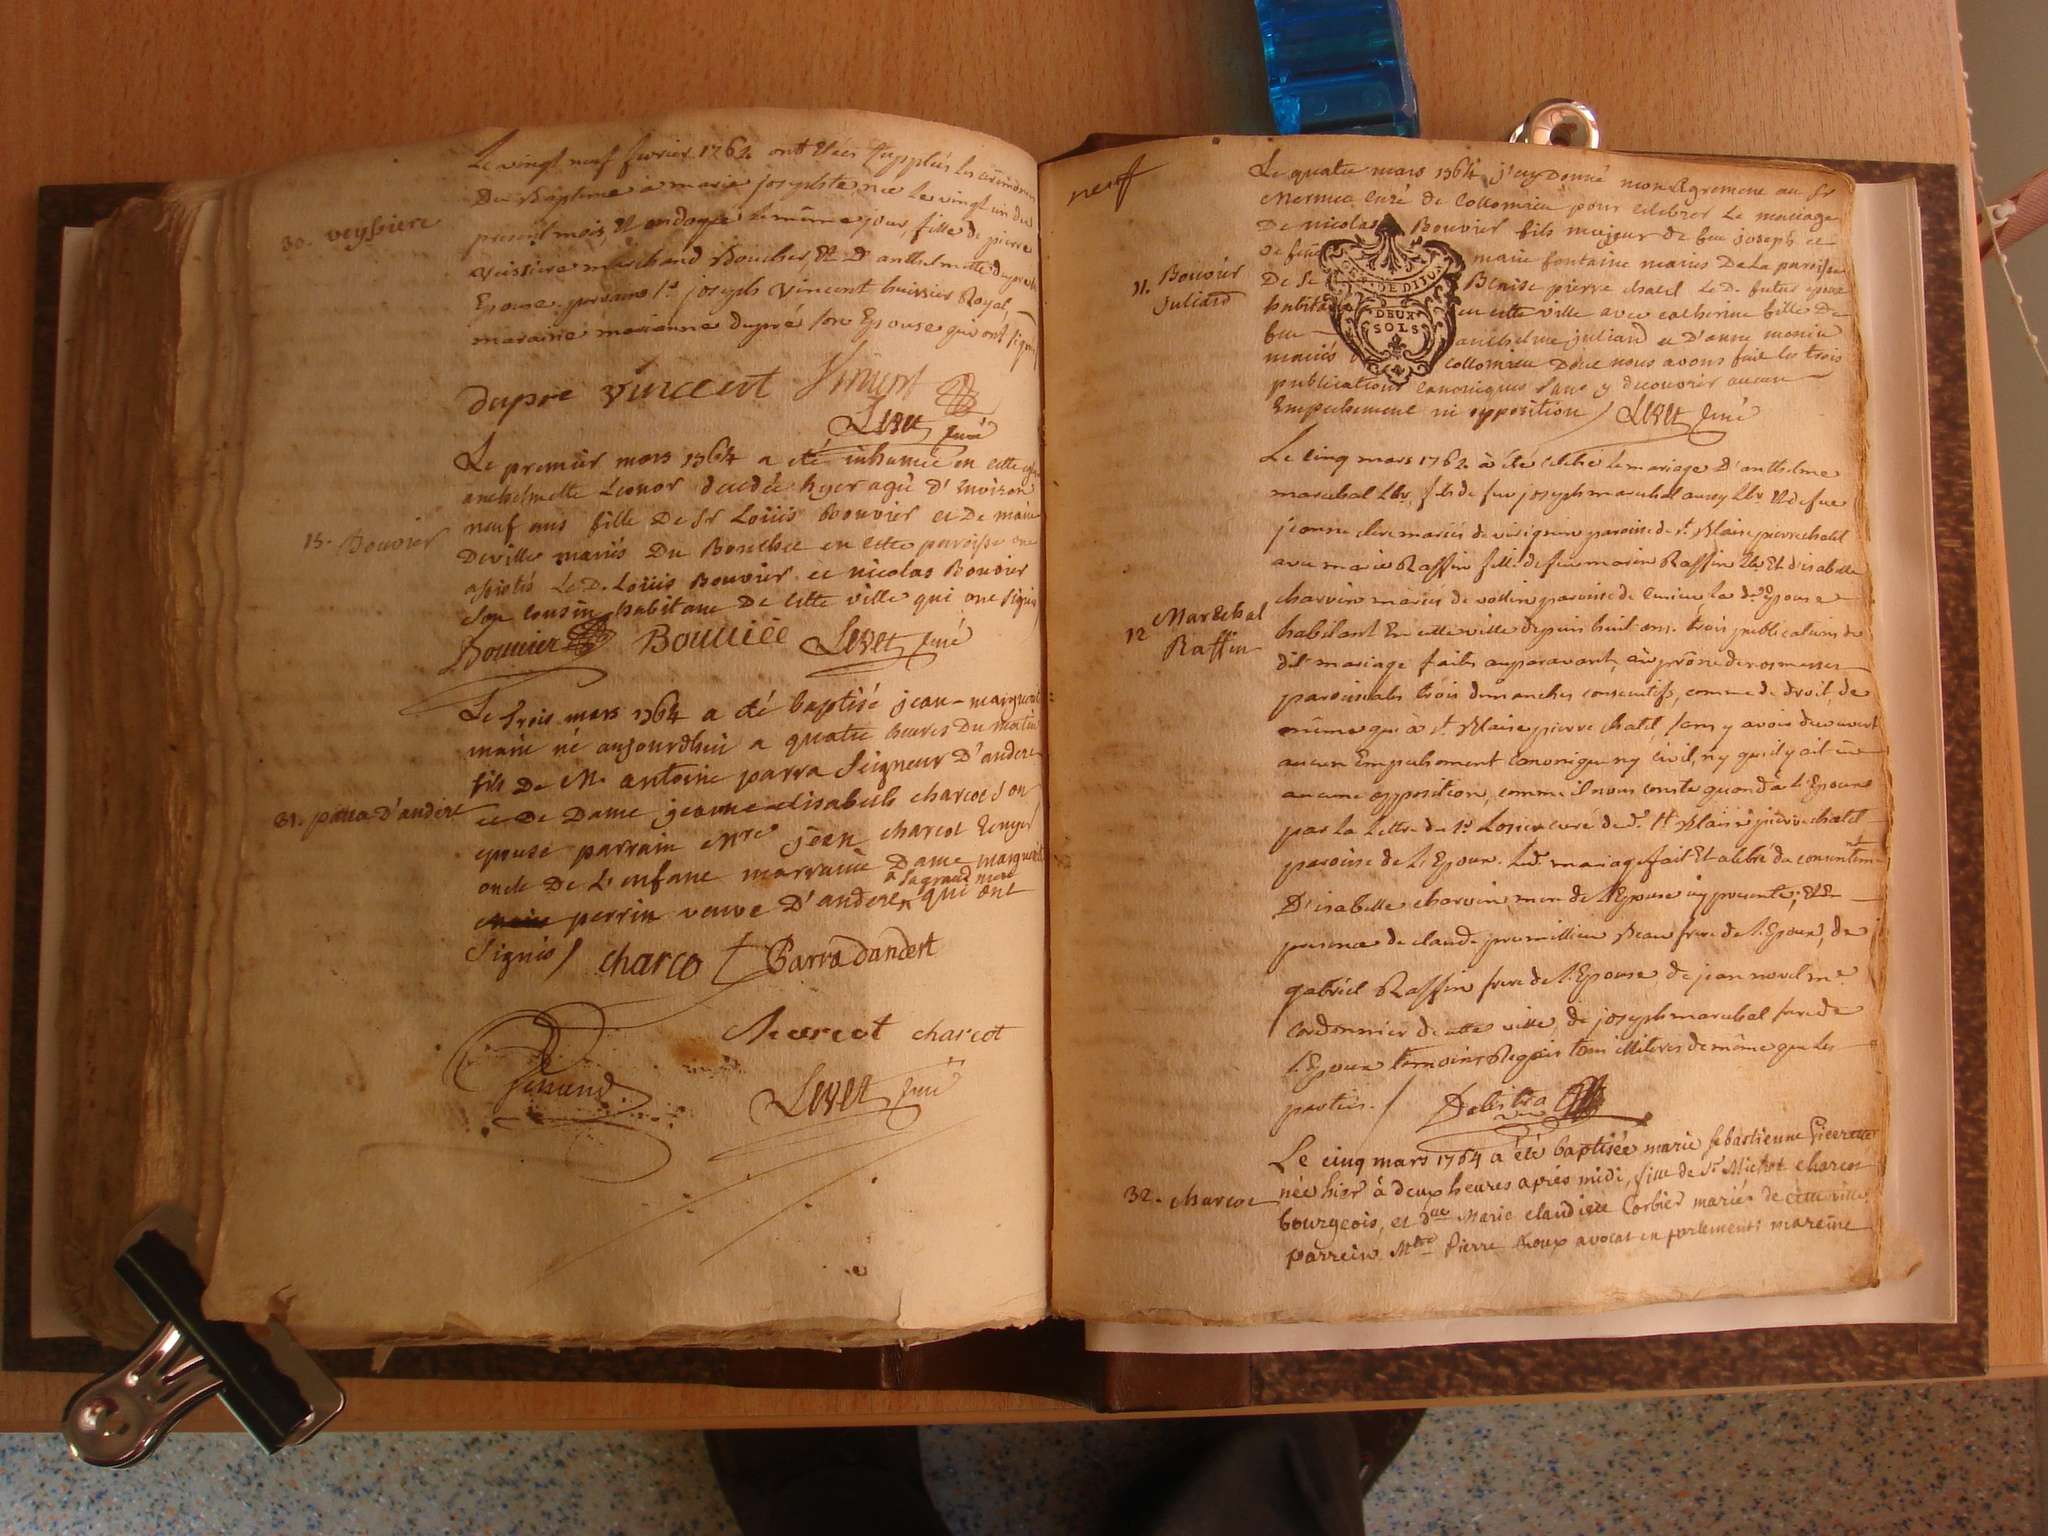 30. veyssiere
Le vingt neuf fevrier 1764 ont etées supplées les cérémonies
Du Baptême a marie josephte née le vingt un du
present mois, et ondoyée le même jour, fille de pierre
veissiere marchand Boucher, et D'anthelmette dupré
Epouse. parrain Sr. joseph vincent huissier Royal,
maraine marianne dupré son Epouse qui ont signé
dupré vincent Vincent
Livet curé
15. Bouvier
Le premier mars 1764 a été inhumée en cette
anthelmette Leonor decedée hyer agée D'environ
neuf ans fille De Sr Loüis Bouvier et De marie
Deville mariés Du en cette paroisse ont
assistés Le D. Loüis Bouvier et nicolas Bouvier
son cousin habitans De cette ville qui ont signé
Bouvier Bouuiée Livet curé
31. parra D'andert
Le trois mars 1764 a été baptisé jean-marguerit
marie né aujourdhui a quatre heures Du matin
fils De Mr. antoine parra Seigneur D'andert
et De Dame jeanne elisabeth charcot son
epouse parrain Mre jean charcot
oncle De L'enfant marraine Dame marguerite
perrin veuve D'andert sa grand mere qui ont
signés / charco Parra dandert
charcot charcot
Livet curé
neuf
11. Bouvier
juliard
Le quatre mars 1764 j'ay Donné mon agrement au Sr
curé de Collomieu pour celebrer Le mariage
De nicolas Bouvier fils majeur de feu joseph et
De feue marie fontaine mariés De La paroisse
De St Blaise pierre chatel Le D. futur epoux
habitant en cette ville avec catherine fille De
feu anthelme juliard et D'anne
mariés collomieu Dont nous avons fait les trois
publications canoniques sans y decouvrir aucun
Empechement ni opposition / Livet curé
DEUX
SOLS
12 Maréchal
Raffin
Le cinq mars 1764 à été célébré le mariage D'anthelme
maréchal Lbr, fils de feu joseph maréchal aussy Lbr et de feue
jeanne mariés de virignin paroisse de St. Blaise pierre chatel
avec marie Raffin fille de feu Raffin Lbr Et d'isabelle
charvin mariés de paroisse de la de. Epouse
habitant En cette ville depuis huit ans. trois publications du
dit mariage faites auparavant, au prône de nos messes
paroissiales trois dimanches consecutifs, comme de droit de
même que à St. Blaise pierre chatel, sans y avoir decouvert
aucun Empechement canonique ny civil, ny qu'il y ait eû
aucune opposition, comme il nous conste quand à L'Epoux
par la Lettre du Sr. curé de St Blaise pierre chatel
paroisse de L'Epoux. Led. mariage fait Et célébré du consentement
D'isabelle charvin mere de l'Epouse icy presente; Et En
presence de claude beau frere de L'Epoux, de
gabriel Raffin frere de L'Epouse, de jean novel me.
cordonnier de cette ville, de joseph maréchal frere de
L'Epoux témoins Requis tous illiterés de même que les
parties. /
32. charcot
Le cinq mars 1764 a été baptisée marie sebastienne Pierrette
née hier à deux heures après midi, fille de Sr. Michel charcot
bourgeois, et dlle Marie claudine Corbier mariés de cette ville
parrein Mtre Pierre Roux avocat en parlement mareine